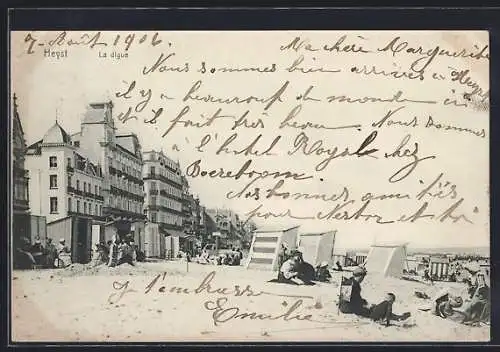 7 Août 1906
Heyst La digue
Ma chère Marguerite
Nous sommes bien arrivés à Heyst
il y a beaucoup de monde ici
il fait très beau. Nous sommes
à l'hotel Royal chez
Boereboom.
Nos bonnes amitiés
pour Nestor et toi
J'embrasse
Emilie